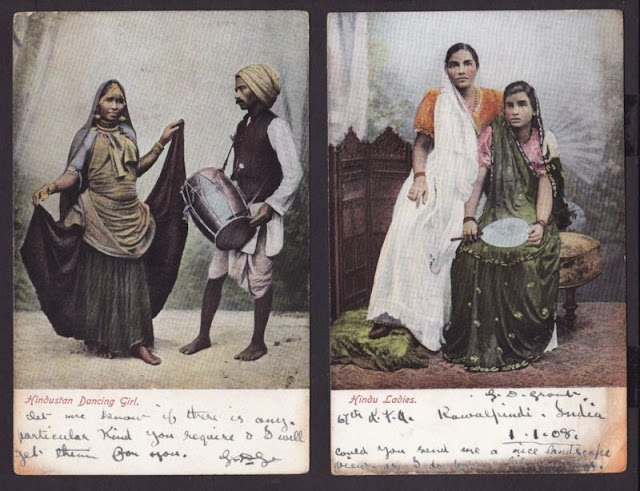 Hindustan Dancing Girl.
Let me know if there is any
particular kind you require & I will
get them for you.
Hindu Ladies.
Rawalpindi. India
1.1.08.
could you send me a nice landscape
view